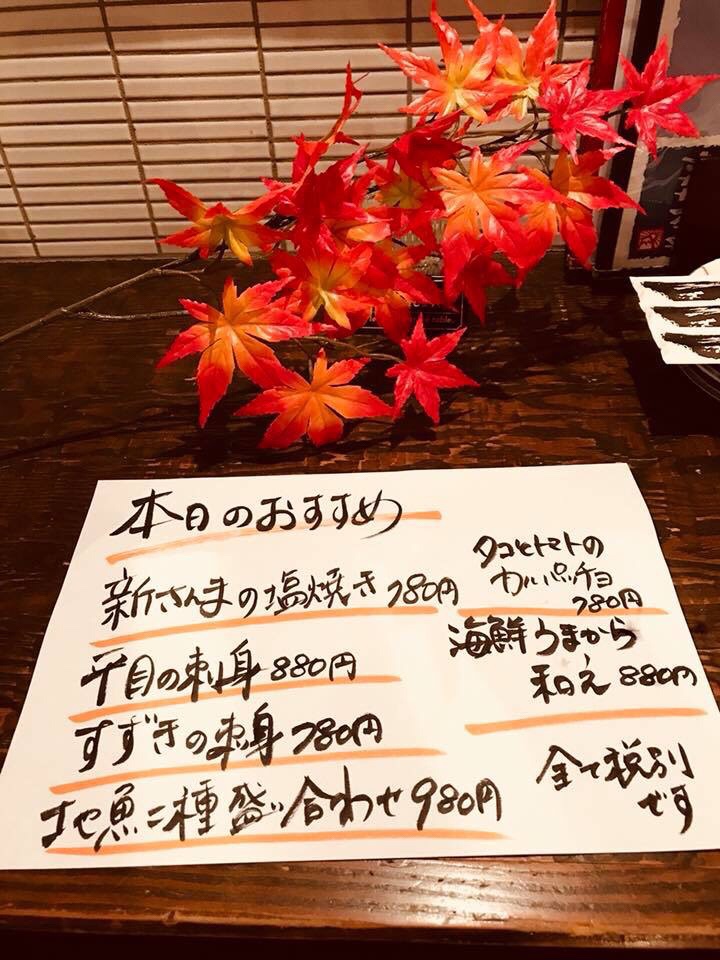 本日のおすすめ
新さんまの塩焼き 780円
平目の刺身 880円
すずきの刺身 780円
地魚二種盛り合わせ 980円
タコとトマトの
カルパッチョ
780円
海鮮うまから
和え 880円
全て税別
です